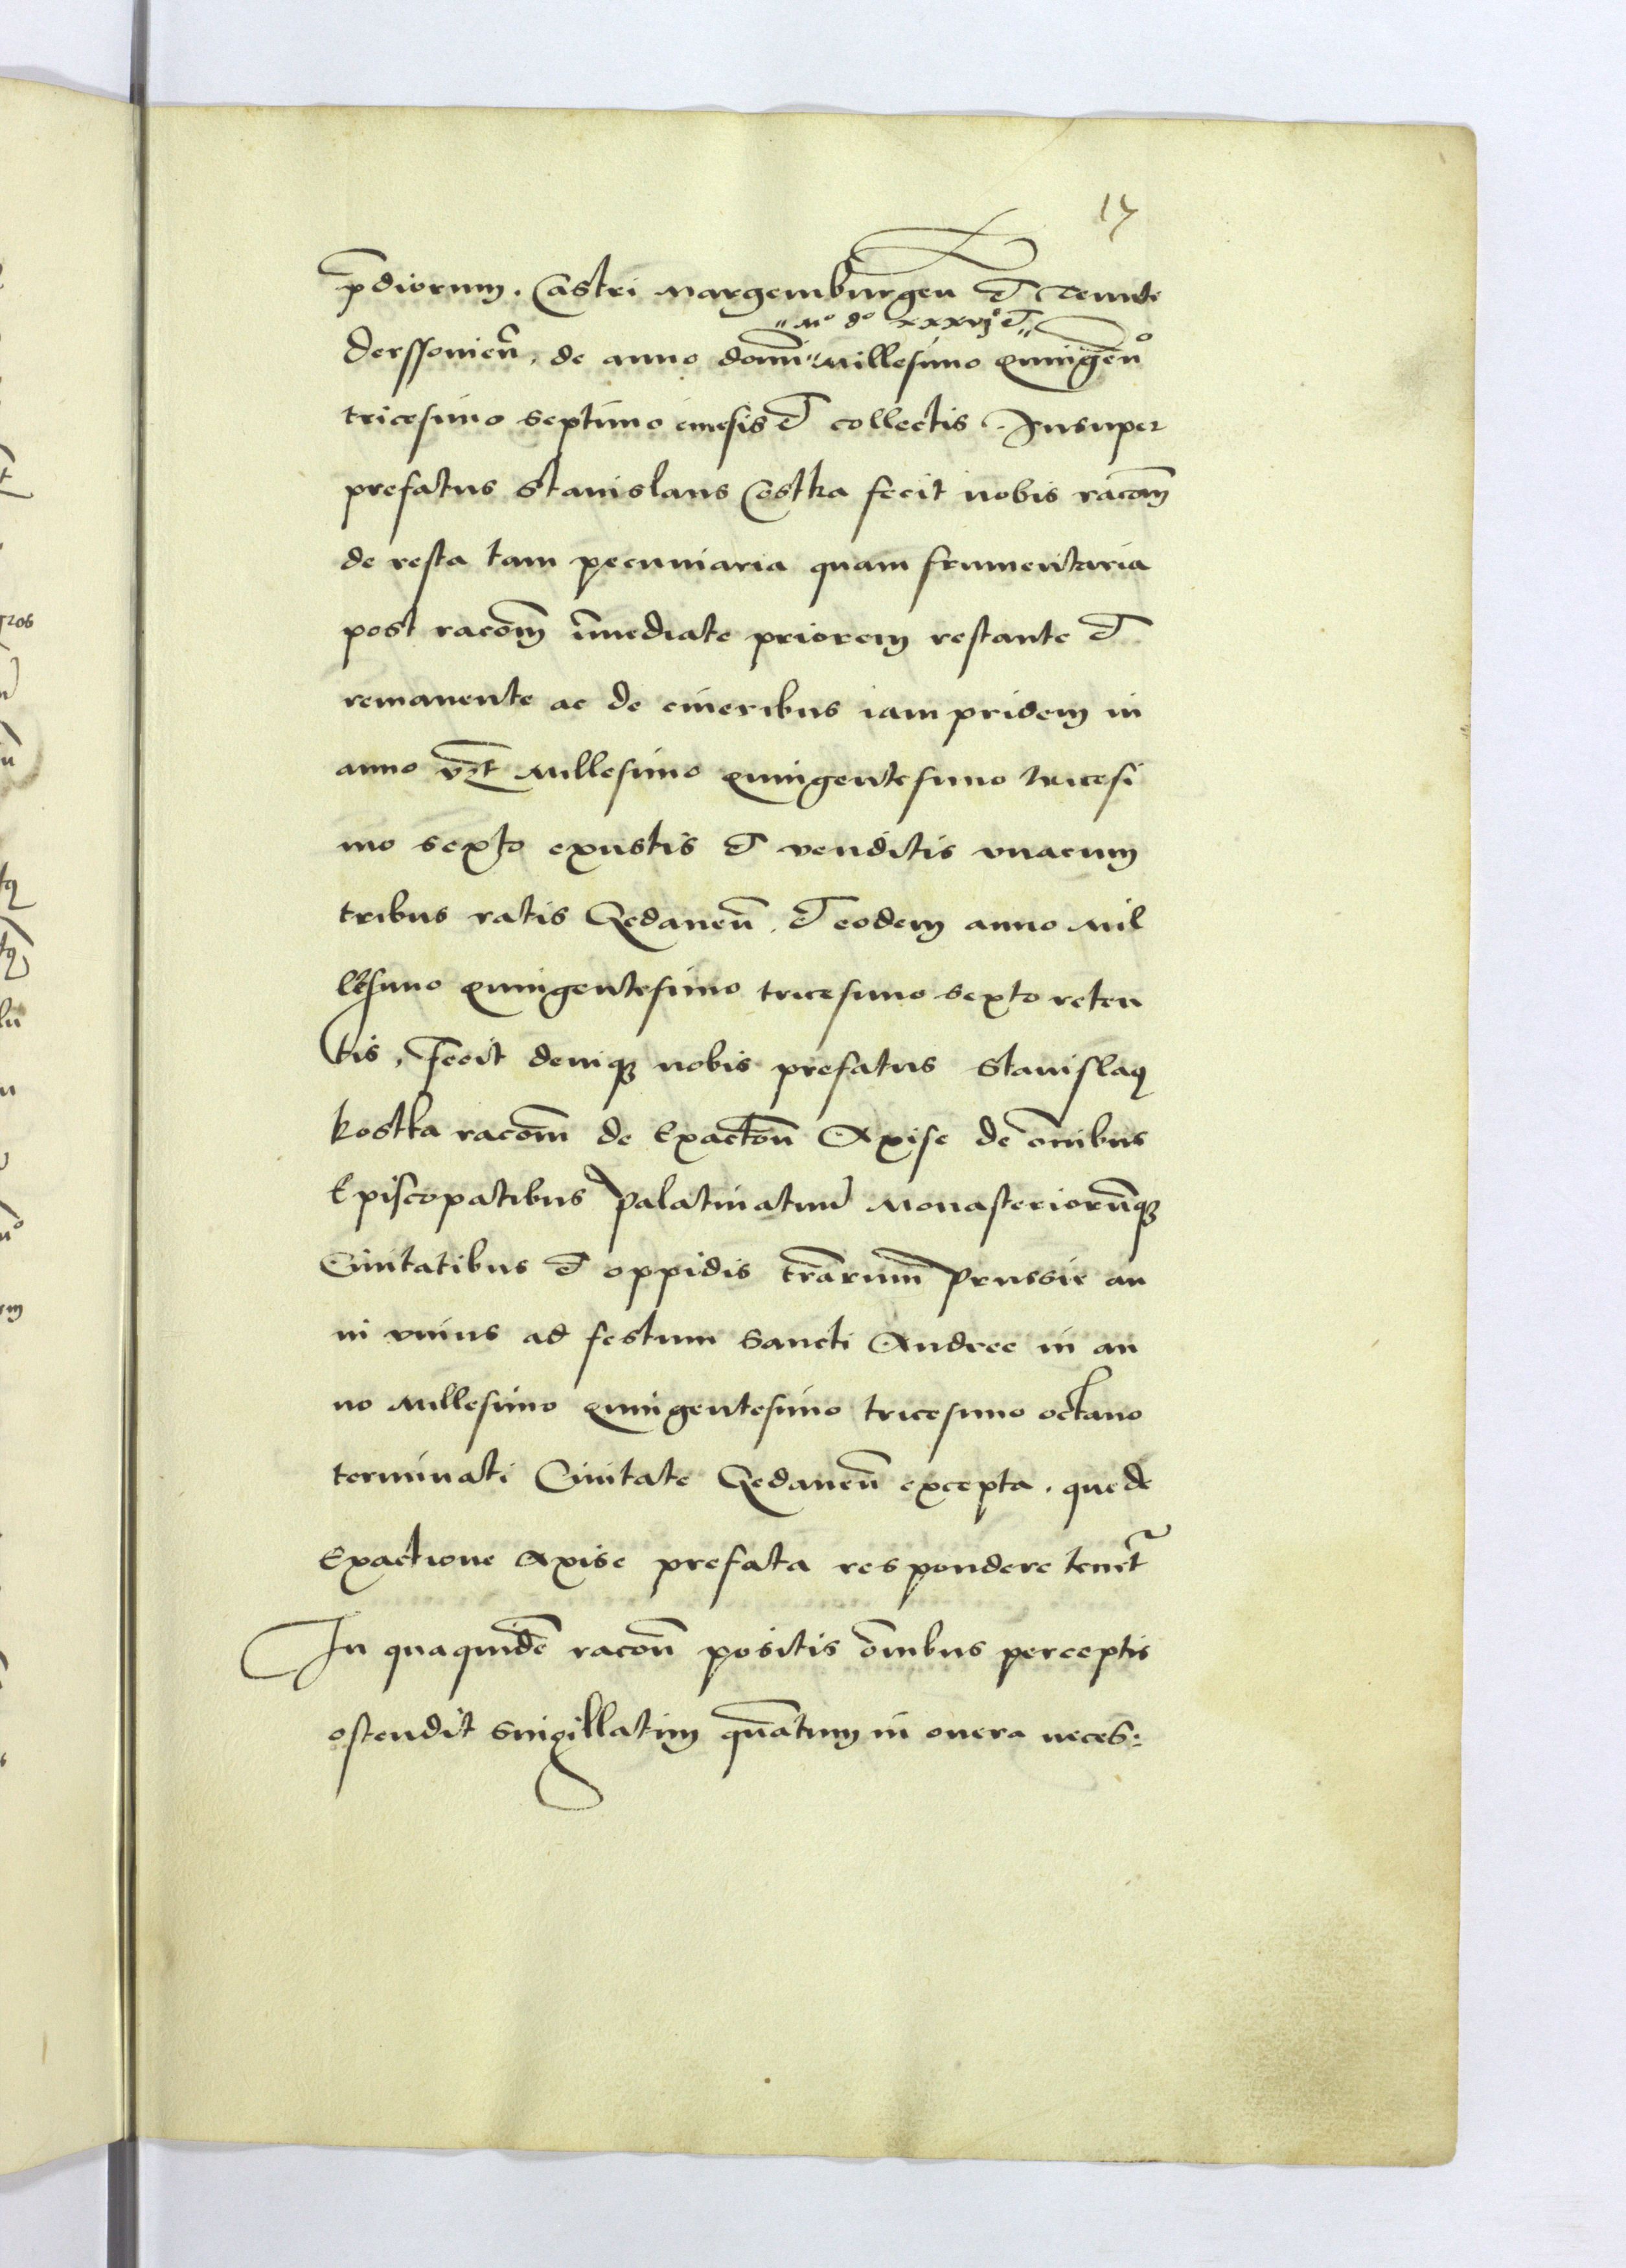 17
p̄diorum. Castri Margemburgeñ et Tenute
"Mº dº xxxvjº et"
Derssovieñ. de anno domī "Millesimo quingeñº
tricesimo septimo emesis et collectis. Insuper
prefatus Stanislaus Costka fecit nobis racōm
de resta tam pecuniaria quam frumentaria
post racōm īmediate priorem restante et
remanente ac de cineribus iam pridem in
anno vz̄t Millesimo quingentesimo tricesi
mo sexto exustis et venditis vnacum
tribus ratis Gedaneñ. et eodem anno Mil
lesimo quingentesimo tricesimo sexto reten
tis. Fecit deniqꝫ nobis prefatus Stanislaꝰ
Kostka racōm de Exactōn Axise de om̄ibus
Episcopatibus Palatinatuū Monasteriorūqꝫ
Ciuitatibus et oppidis tr̄arum Prussie an
ni vnius ad festum Sancti Andree in an
no Millesimo quingentesimo tricesimo octauo
terminati Ciuitate Gedaneñ excepta. que de
Exactione Axise prefata respondere tenet᷑
In quaquidē racōn positis om̄ibus perceptis
ostendit singillatim quātum in onera neces: